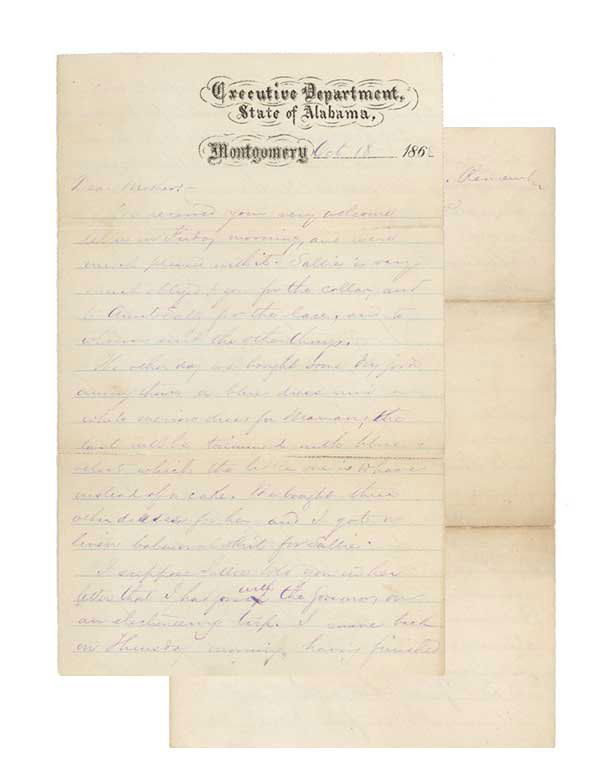 Executive Department,
State of Alabama,
Montgomery Oct 18 186
Dear Mother:-
received your very welcome
letter on Friday morning, and were
much pleased with it. Sallie is very
much obliged for the collar, and
to Aunt for the lace, and to
the other things.
The other day we bought some dry goods
among them a blue dress and a
white merino dress for Mamie, the
last will be trimmed with blue
velvet which the is to have
instead of a cake. We bought three
other dresses for her and I got a
balmoral skirt for Sallie.
I suppose Sallie told you in her
letter that I had gone with the Governor on
an electioneering trip. I came back
on Thursday morning, having finished
Remember